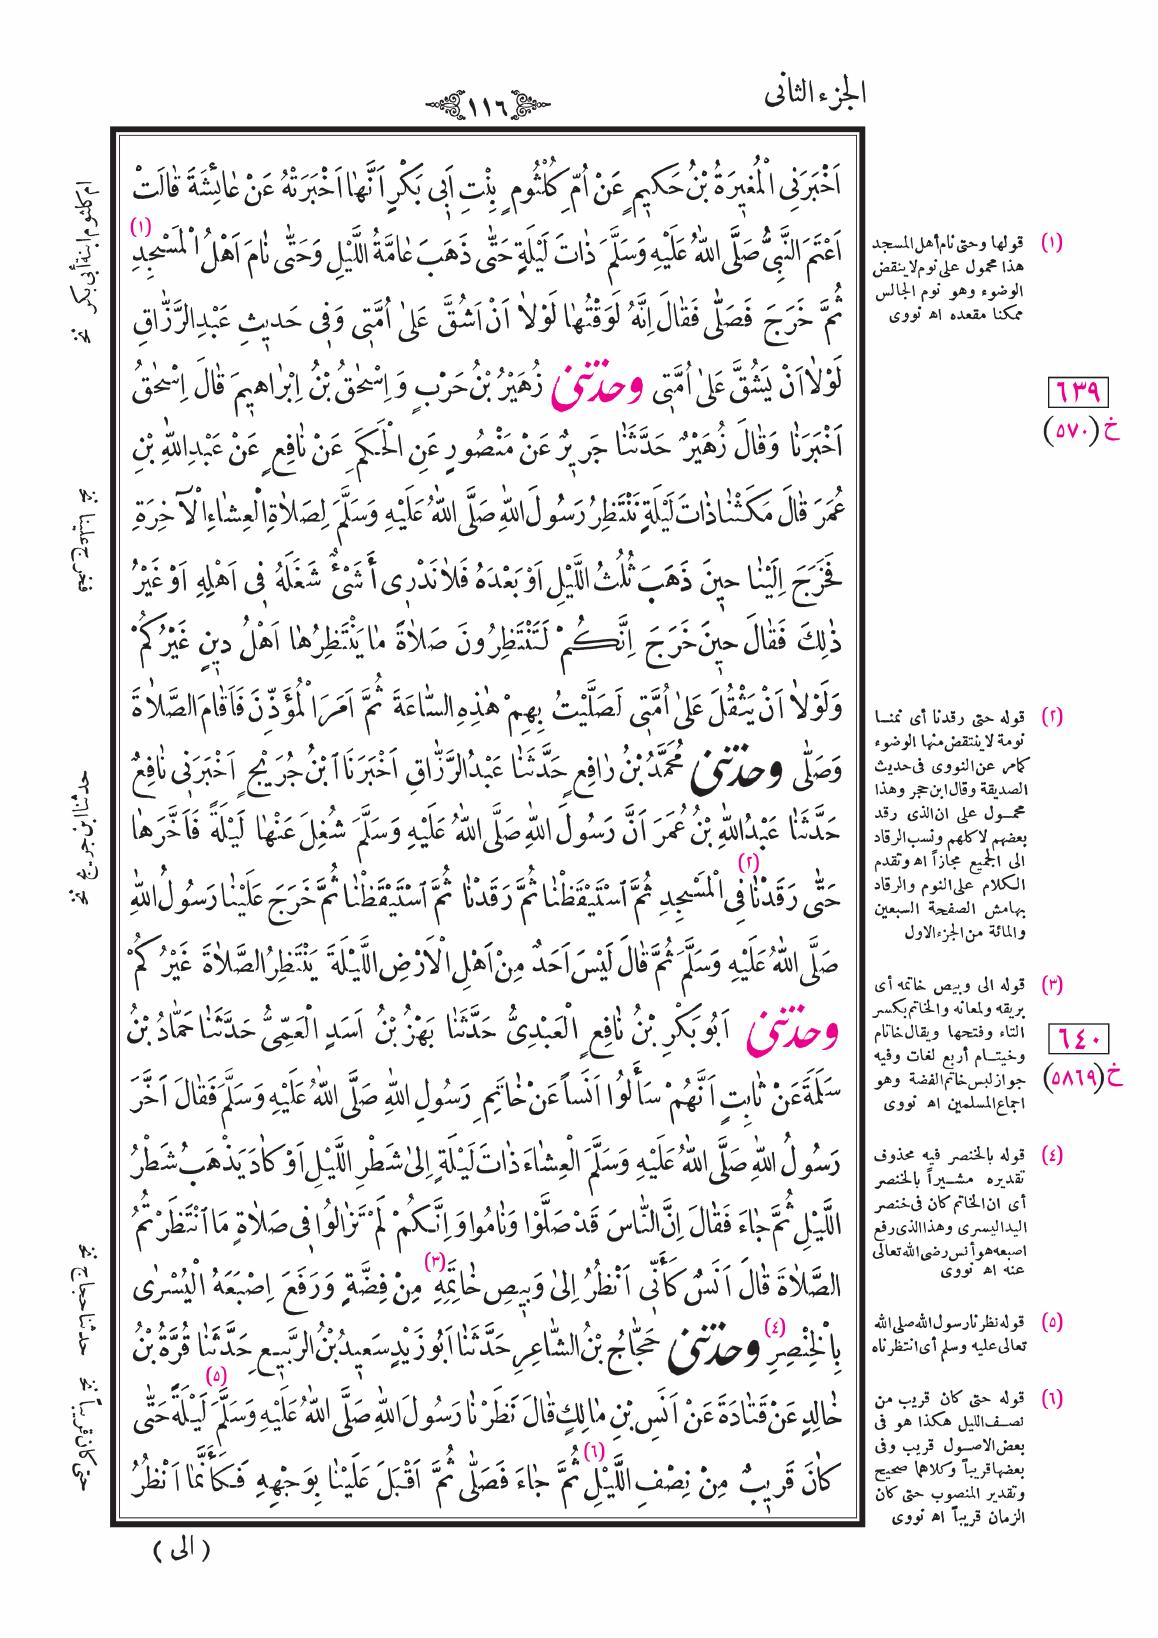 الجزء الثانى
١١٦
اَخْبَرَنِى الْمُغِيرَةُ بْنُ حَكِيمٍ عَنْ اُمِّ كُلْثُومٍ بِنْتِ اَبِى بَكْرٍ اَنَّهَا اَخْبَرَتْهُ عَنْ عَائِشَةَ قَالَتْ
اَعْتَمَ النَّبِىُّ صَلَّى اللهُ عَلَيْهِ وَسَلَّمَ ذَاتَ لَيْلَةٍ حَتَّى ذَهَبَ عَامَّةُ اللَّيْلِ وَحَتَّى نَامَ اَهْلُ الْمَسْجِدِ (١)
ثُمَّ خَرَجَ فَصَلَّى فَقَالَ اِنَّهُ لَوَقْتُهَا لَوْلَا اَنْ اَشُقَّ عَلَى اُمَّتِى وَفِى حَدِيثِ عَبْدِ الرَّزَّاقِ
لَوْلَا اَنْ يَشُقَّ عَلَى اُمَّتِى وحدثنى زُهَيْرُ بْنُ حَرْبٍ وَ اِسْحٰقُ بْنُ اِبْرَاهِيمَ قَالَ اِسْحٰقُ
اَخْبَرَنَا وَقَالَ زُهَيْرٌ حَدَّثَنَا جَرِيرٌ عَنْ مَنْصُورٍ عَنِ الْحَكَمِ عَنْ نَافِعٍ عَنْ عَبْدِ اللهِ بْنِ
عُمَرَ قَالَ مَكَثْنَا ذَاتَ لَيْلَةٍ نَنْتَظِرُ رَسُولَ اللهِ صَلَّى اللهُ عَلَيْهِ وَسَلَّمَ لِصَلَاةِ الْعِشَاءِ الْآخِرَةِ
فَخَرَجَ اِلَيْنَا حِينَ ذَهَبَ ثُلُثُ اللَّيْلِ اَوْ بَعْدَهُ فَلَا نَدْرِى أَشَىْءٌ شَغَلَهُ فِى اَهْلِهِ اَوْ غَيْرُ
ذٰلِكَ فَقَالَ حِينَ خَرَجَ اِنَّكُمْ لَتَنْتَظِرُونَ صَلَاةً مَا يَنْتَظِرُهَا اَهْلُ دِينٍ غَيْرُكُمْ
وَلَوْلَا اَنْ يَثْقُلَ عَلَى اُمَّتِى لَصَلَّيْتُ بِهِمْ هٰذِهِ السَّاعَةَ ثُمَّ اَمَرَ الْمُؤَذِّنَ فَاَقَامَ الصَّلَاةَ
وَصَلَّى وحدثنى مُحَمَّدُ بْنُ رَافِعٍ حَدَّثَنَا عَبْدُ الرَّزَّاقِ اَخْبَرَنَا ابْنُ جُرَيْجٍ اَخْبَرَنِى نَافِعٌ
حَدَّثَنَا عَبْدُ اللهِ بْنُ عُمَرَ اَنَّ رَسُولَ اللهِ صَلَّى اللهُ عَلَيْهِ وَسَلَّمَ شُغِلَ عَنْهَا لَيْلَةً فَاَخَّرَهَا
حَتَّى رَقَدْنَا (٢) فِى الْمَسْجِدِ ثُمَّ اسْتَيْقَظْنَا ثُمَّ رَقَدْنَا ثُمَّ اسْتَيْقَظْنَا ثُمَّ خَرَجَ عَلَيْنَا رَسُولُ اللهِ
صَلَّى اللهُ عَلَيْهِ وَسَلَّمَ ثُمَّ قَالَ لَيْسَ اَحَدٌ مِنْ اَهْلِ الْاَرْضِ اللَّيْلَةَ يَنْتَظِرُ الصَّلَاةَ غَيْرُكُمْ
وحدثنى اَبُو بَكْرِ بْنُ نَافِعٍ الْعَبْدِىُّ حَدَّثَنَا بَهْزُ بْنُ اَسَدٍ الْعَمِّىُّ حَدَّثَنَا حَمَّادُ بْنُ
سَلَمَةَ عَنْ ثَابِتٍ اَنَّهُمْ سَأَلُوا اَنَساً عَنْ خَاتَمِ رَسُولِ اللهِ صَلَّى اللهُ عَلَيْهِ وَسَلَّمَ فَقَالَ اَخَّرَ
رَسُولُ اللهِ صَلَّى اللهُ عَلَيْهِ وَسَلَّمَ الْعِشَاءَ ذَاتَ لَيْلَةٍ اِلَى شَطْرِ اللَّيْلِ اَوْ كَادَ يَذْهَبُ شَطْرُ
اللَّيْلِ ثُمَّ جَاءَ فَقَالَ اِنَّ النَّاسَ قَدْ صَلَّوْا وَنَامُوا وَ اِنَّكُمْ لَمْ تَزَالُوا فِى صَلَاةٍ مَا انْتَظَرْتُمُ
الصَّلَاةَ قَالَ اَنَسٌ كَأَنِّى اَنْظُرُ اِلَى وَبِيصِ خَاتَمِهِ (٣) مِنْ فِضَّةٍ وَرَفَعَ اِصْبَعَهُ الْيُسْرَى
بِالْخِنْصِرِ (٤) وحدثنى حَجَّاجُ بْنُ الشَّاعِرِ حَدَّثَنَا اَبُو زَيْدٍ سَعِيدُ بْنُ الرَّبِيعِ حَدَّثَنَا قُرَّةُ بْنُ
خَالِدٍ عَنْ قَتَادَةَ عَنْ اَنَسِ بْنِ مَالِكٍ قَالَ نَظَرْنَا رَسُولَ اللهِ صَلَّى اللهُ عَلَيْهِ وَسَلَّمَ (٥) لَيْلَةً حَتَّى
كَانَ قَرِيبٌ مِنْ نِصْفِ اللَّيْلِ (٦) ثُمَّ جَاءَ فَصَلَّى ثُمَّ اَقْبَلَ عَلَيْنَا بِوَجْهِهِ فَكَأَنَّمَا اَنْظُرُ
( الى )
(١) قولها وحتى نام أهل المسجد
هذا محمول على نوم لا ينقض
الوضوء وهو نوم الجالس
ممكنا مقعده اه نووى
٦٣٩
خ (٥٧٠)
(٢) قوله حتى رقدنا أى نمنا
نومة لا ينتقض منها الوضوء
كما مر عن النووى فى حديث
الصديقة وقال ابن حجر وهذا
محمول على ان الذى رقد
بعضهم لا كلهم ونسب الرقاد
الى الجميع مجازاً اه وتقدم
الكلام على النوم والرقاد
بهامش الصفحة السبعين
والمائة من الجزء الاول
(٣) قوله الى وبيص خاتمه أى
بريقه ولمعانه والخاتم بكسر
التاء وفتحها ويقال خاتام
وخيتام أربع لغات وفيه
جواز لبس خاتم الفضة وهو
اجماع المسلمين اه نووى
٦٤٠
خ (٥٨٦٩)
(٤) قوله بالخنصر فيه محذوف
تقديره مشيراً بالخنصر
أى ان الخاتم كان فى خنصر
اليد اليسرى وهذا الذى رفع
اصبعه هو أنس رضى الله تعالى
عنه اه نووى
(٥) قوله نظرنا رسول الله صلى الله
تعالى عليه وسلم أى انتظرناه
(٦) قوله حتى كان قريب من
نصف الليل هكذا هو فى
بعض الاصول قريب وفى
بعضها قريباً وكلاهما صحيح
وتقدير المنصوب حتى كان
الزمان قريباً اه نووى
ام كلثوم ابنة أبى بكر نخ
فخرج علينا نخ
حدثنا ابن جريج نخ
حدثنا حجاج نخ
حتى كان قريباً نخ